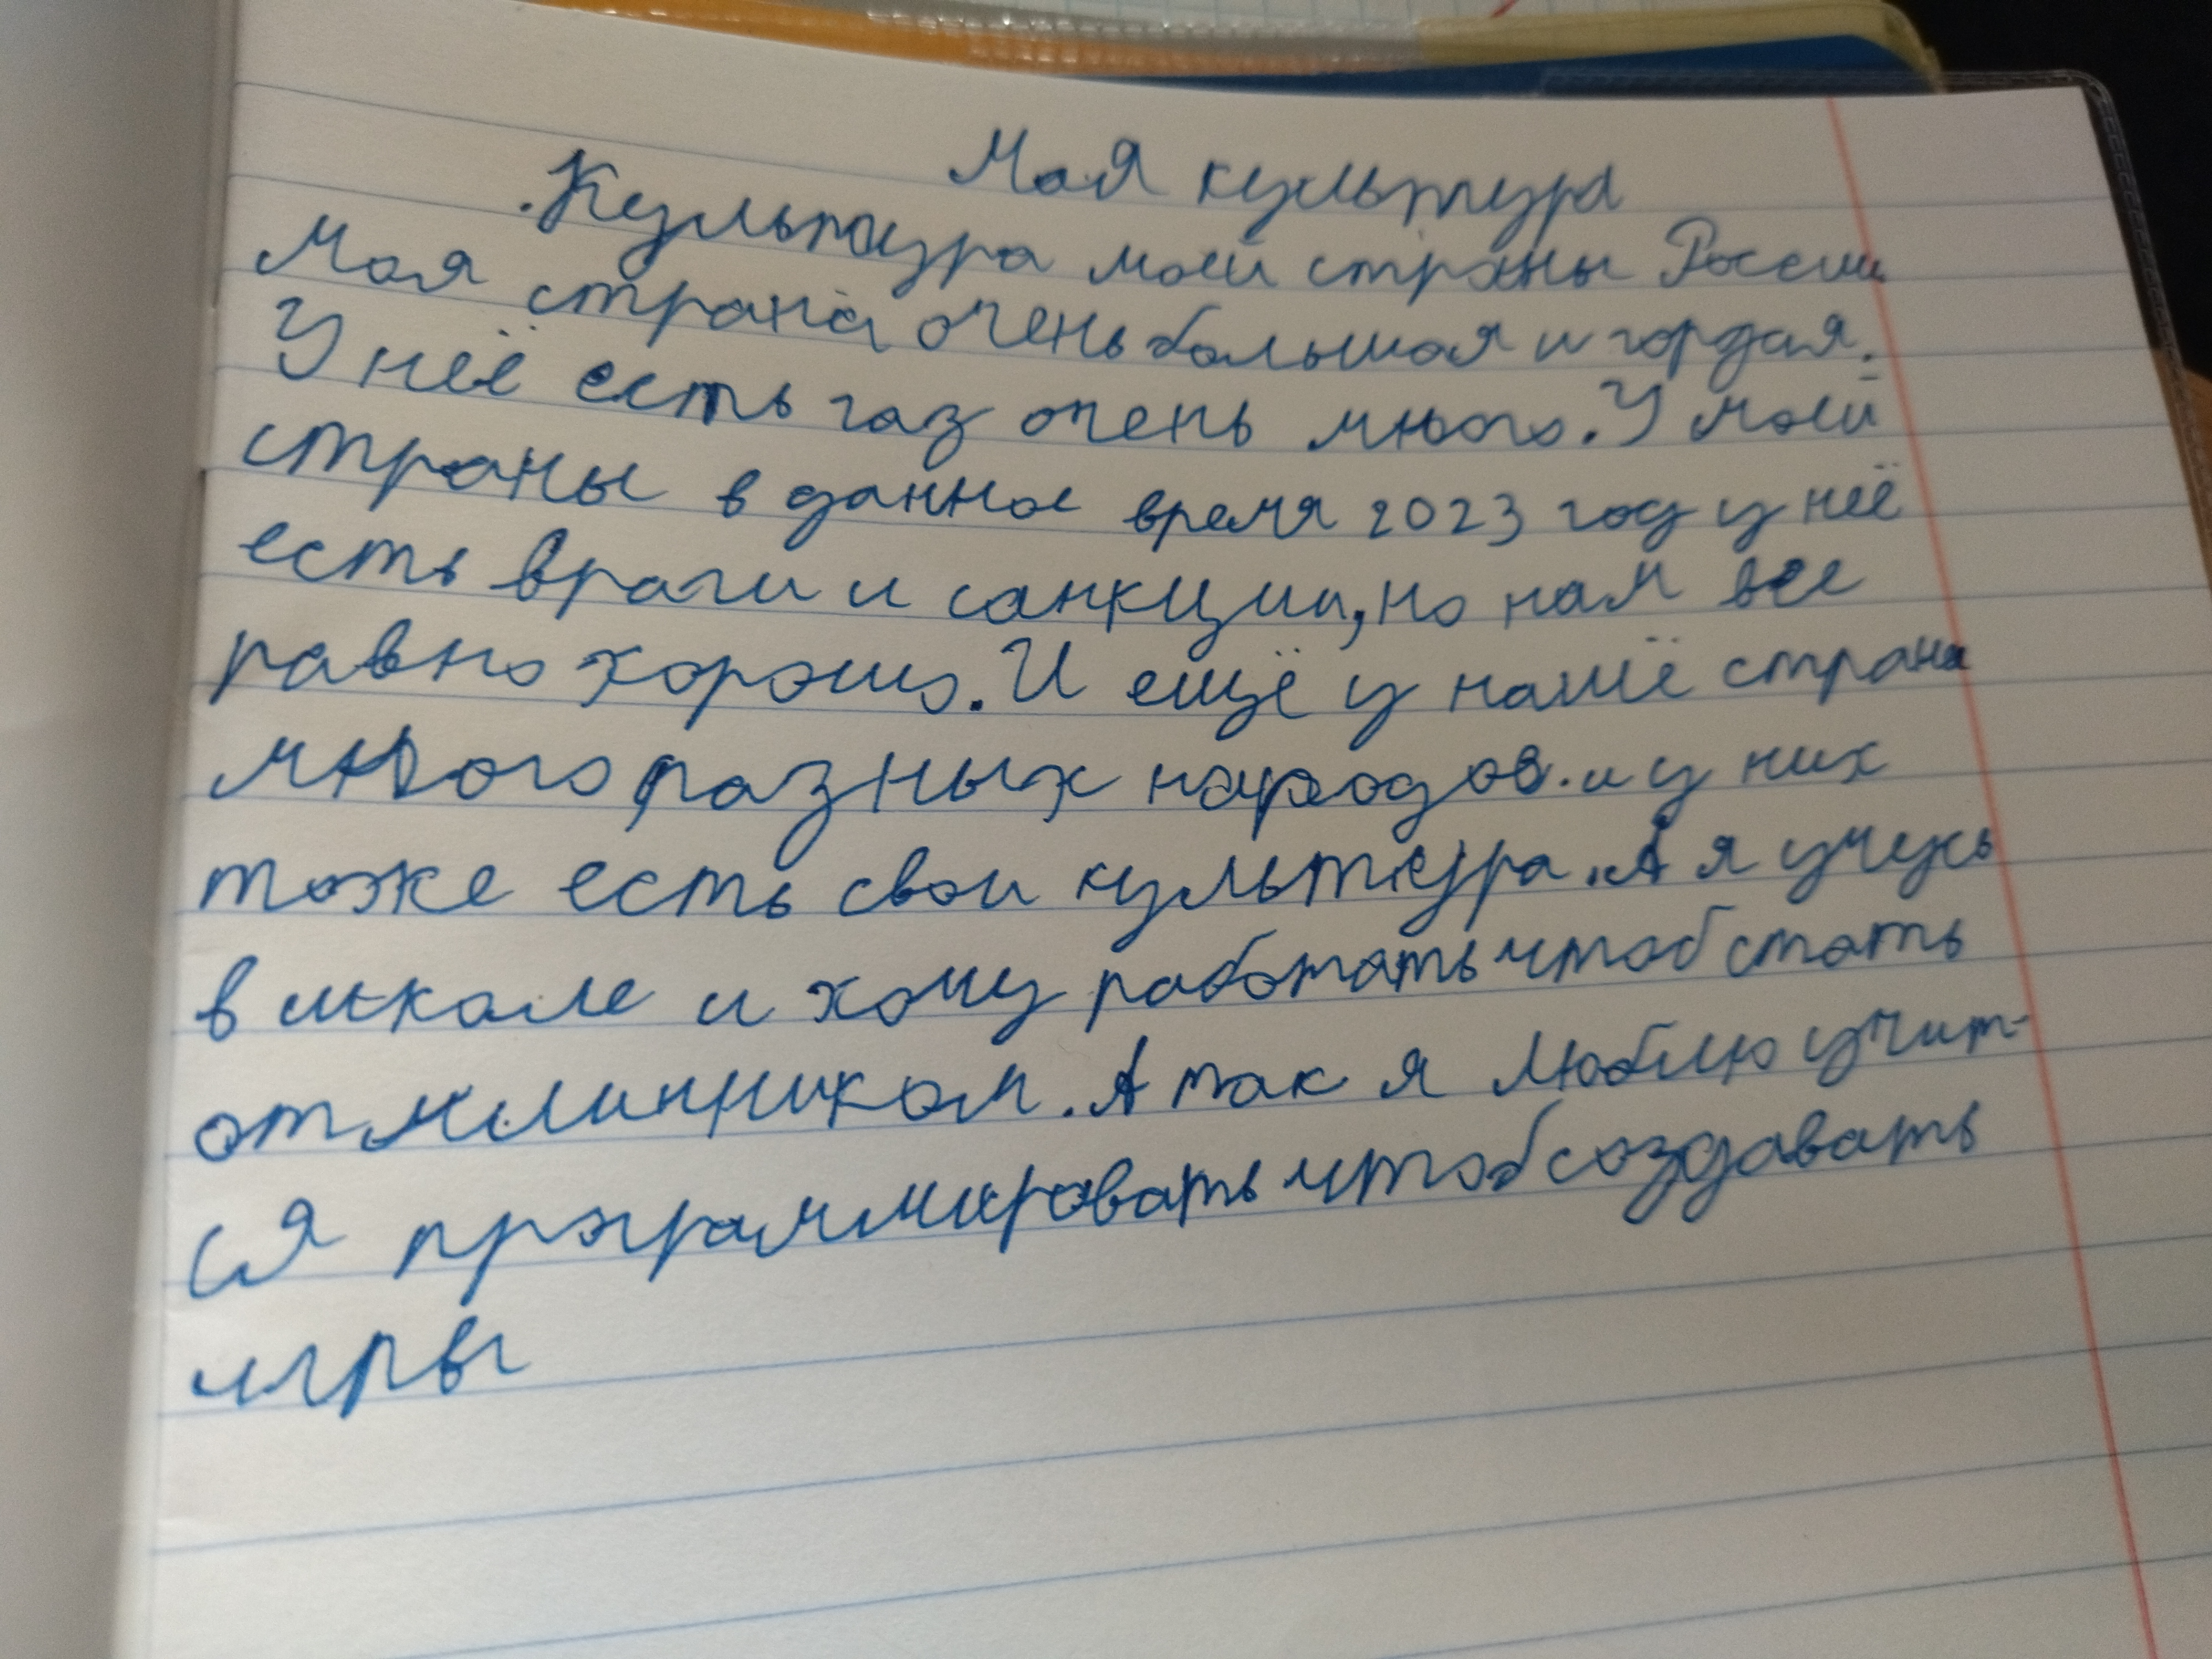 Моя культура
.Культура моей страны России
Моя страна очень большая и гордая.
У неё есть газ очень много. У моей
страны в данное время 2023 год у неё
есть враги и санкции, но нам все
равно хорошо. И ещё у нашё страна
много разных народов. и у них
тоже есть свои культура. А я учусь
в школе и хочу работать чтоб стать
отмлинником. А так я люблю учит-
ся программировать чтоб создавать
игры